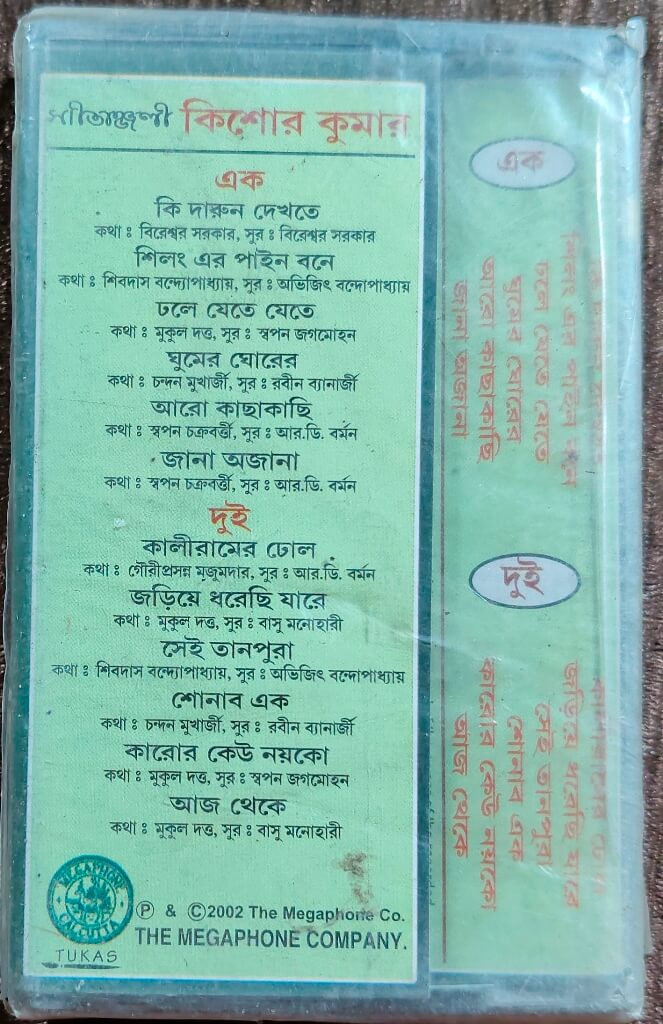 গীতাঞ্জলী কিশোর কুমার
এক
কি দারুন দেখতে
কথা : বিরেশ্বর সরকার, সুর : বিরেশ্বর সরকার
শিলং এর পাইন বনে
কথা : শিবদাস বন্দ্যোপাধ্যায়, সুর : অভিজিৎ বন্দোপাধ্যায়
ঢলে যেতে যেতে
কথা : মুকুল দত্ত, সুর : স্বপন জগমোহন
ঘুমের ঘোরের
কথা : চন্দন মুখার্জী, সুর : রবীন ব্যানার্জী
আরো কাছাকাছি
কথা : স্বপন চক্রবর্ত্তী, সুর : আর.ডি. বর্মন
জানা অজানা
কথা : স্বপন চক্রবর্ত্তী, সুর : আর.ডি. বর্মন
দুই
কালীরামের ঢোল
কথা : গৌরীপ্রসন্ন মজুমদার, সুর : আর.ডি. বর্মন
জড়িয়ে ধরেছি যারে
কথা : মুকুল দত্ত, সুর : বাসু মনোহারী
সেই তানপুরা
কথা : শিবদাস বন্দ্যোপাধ্যায়, সুর : অভিজিৎ বন্দোপাধ্যায়
শোনাব এক
কথা : চন্দন মুখার্জী, সুর : রবীন ব্যানার্জী
কারোর কেউ নয়কো
কথা : মুকুল দত্ত, সুর : স্বপন জগমোহন
আজ থেকে
কথা : মুকুল দত্ত, সুর : বাসু মনোহারী
MEGAPHONE
CALCUTTA
TUKAS
Ⓟ & ©2002 The Megaphone Co.
THE MEGAPHONE COMPANY.
এক
শিলং এর পাইন বনে
ঢলে যেতে যেতে
ঘুমের ঘোরের
আরো কাছাকাছি
জানা অজানা
দুই
কালীরামের ঢোল
জড়িয়ে ধরেছি যারে
সেই তানপুরা
শোনাব এক
কারোর কেউ নয়কো
আজ থেকে